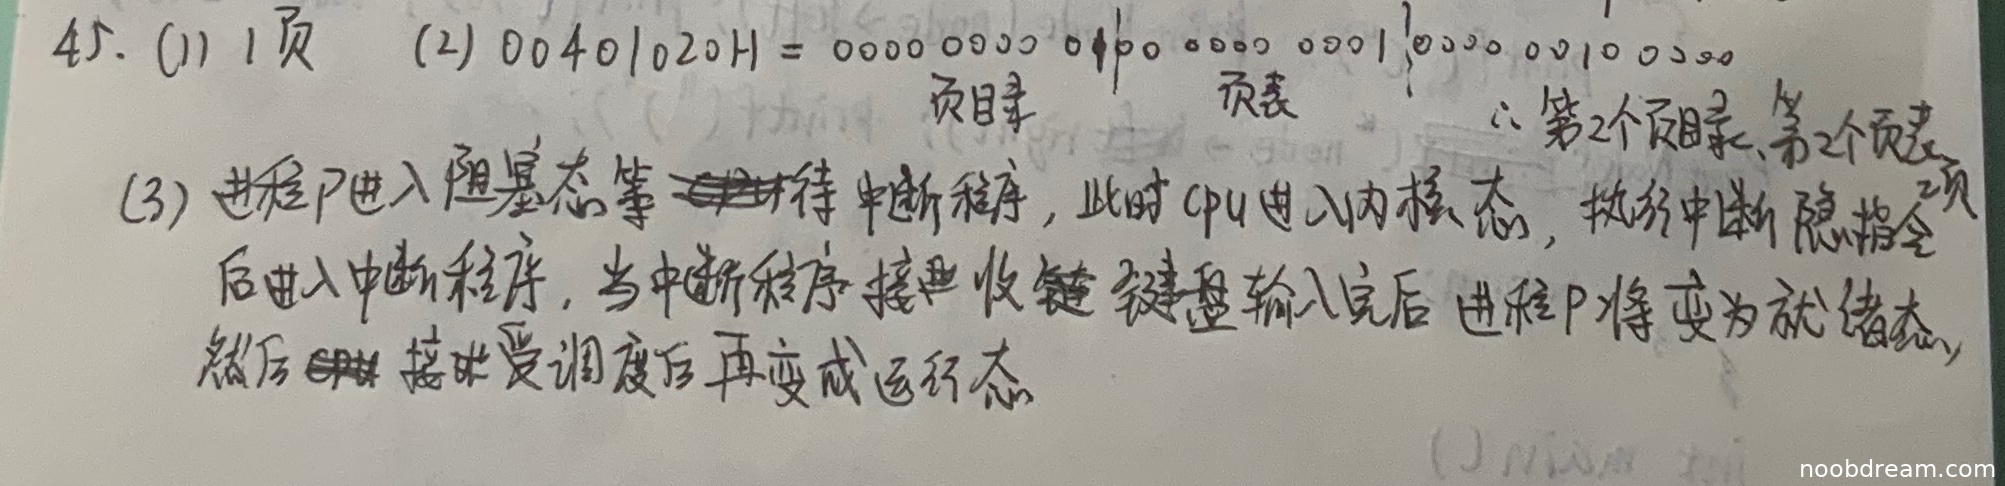 45. (1) 1页 (2) 00401020H = 0000 0000 0100 0000 0001 0000 0010 0000
页目录 页表 ∴ 第2个页目录、第2个页表
2项
(3) 进程P进入阻塞态等待中断程序，此时CPU进入内核态，执行中断隐指令
后进入中断程序，当中断程序接收键盘输入完后进程P将变为就绪态，
然后接受调度后再变成运行态
noobdream.com